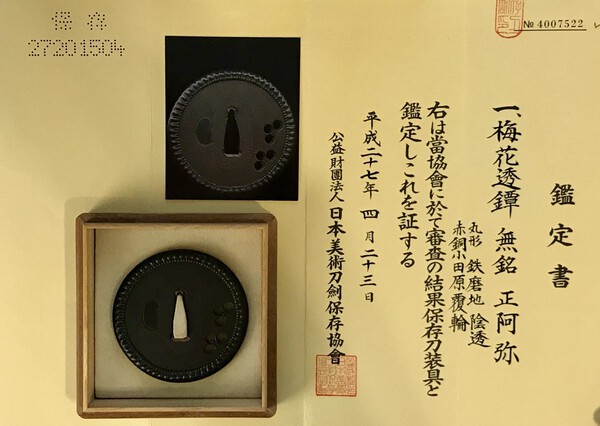 保存
27201504
№ 4007522
鑑定書
一、梅花透鐔 無銘 正阿弥
丸形 鉄磨地 陰透
赤銅小田原覆輪
右は當協會に於て審査の結果保存刀装具と
鑑定しこれを証する
平成二十七年 四月 二十三日
公益財團法人 日本美術刀劍保存協會